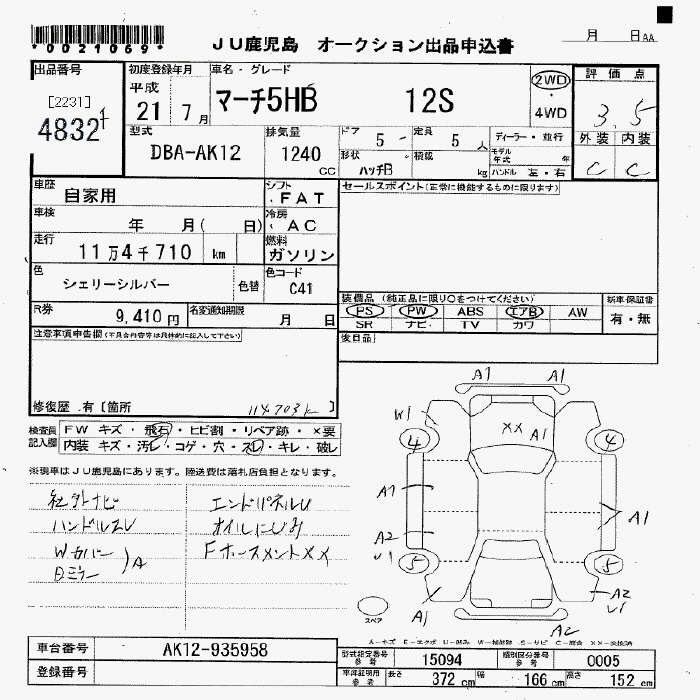 *0021069*
JU鹿児島 オークション出品申込書 月 日AA
出品番号 初度登録年月 車名・グレード 評価点
[2231] 平成 2WD
4832 21 7月 マーチ5HB 12S 4WD 3.5
型式 排気量 ドア 5 - 定員 5 人 ディーラー・並行 外装 内装
DBA-AK12 1240 CC 形状 ハッチB 積載 kg モデル年式 年 ハンドル 左・右 C C
車歴 自家用 シフト FAT セールスポイント(正常に機能するものに限ります)
車検 年 月( 日) 冷房 AC
走行 11万4千710 km 燃料 ガソリン
色 シェリーシルバー 色替 色コード C41
装備品(純正品に限り○をつけてください) 新車保証書
R券 9,410円 名変通知期限 月 日 PS PW ABS エアB AW 有・無
SR ナビ TV カワ
注意事項申告欄(不具合内容等は具体的に記入して下さい) 後日品
修復歴 有 [箇所 114703k ]
検査員記入欄 FW キズ・飛石・ヒビ割・リペア跡・×要
内装 キズ・汚レ・コゲ・穴・スレ・キレ・破レ
※現車はJU鹿児島にあります。陸送費は落札店負担となります。
社外ナビ エンドパネルU
ハンドルスレ オイルにじみ
Wカバー Fホースメント××
Bミラー A
A1 A1
W1 ×× A1
4 4
A1 A1
A2
U1
5 5
A1 A2
U1
スペア A2
A－キズ E－エクボ U－凹み W－補修跡 S－サビ C－腐食 ××－交換済
車台番号 AK12-935958
登録番号
型式指定番号 参考 15094 類別区分番号 参考 0005
車庫証明用 参考 長さ 372 cm 幅 166 cm 高さ 152 cm